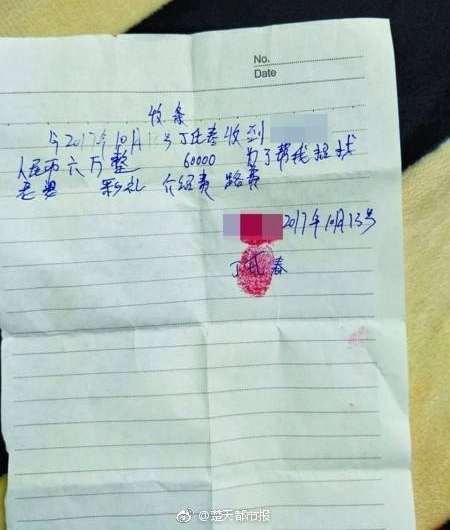 No.
Date
收条
今2017年10月1 号丁氏春收到
人民币六万整 60000 为了帮我 找
老婆 彩礼 介绍费 路费
2017年10月13号
丁氏春
@楚天都市报